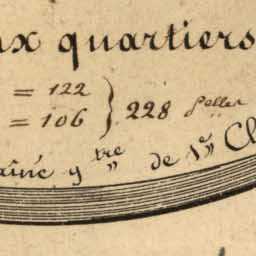 ux quartiers
= 122
= 106 } 228 Selles
aîné y tre de 1re Cl